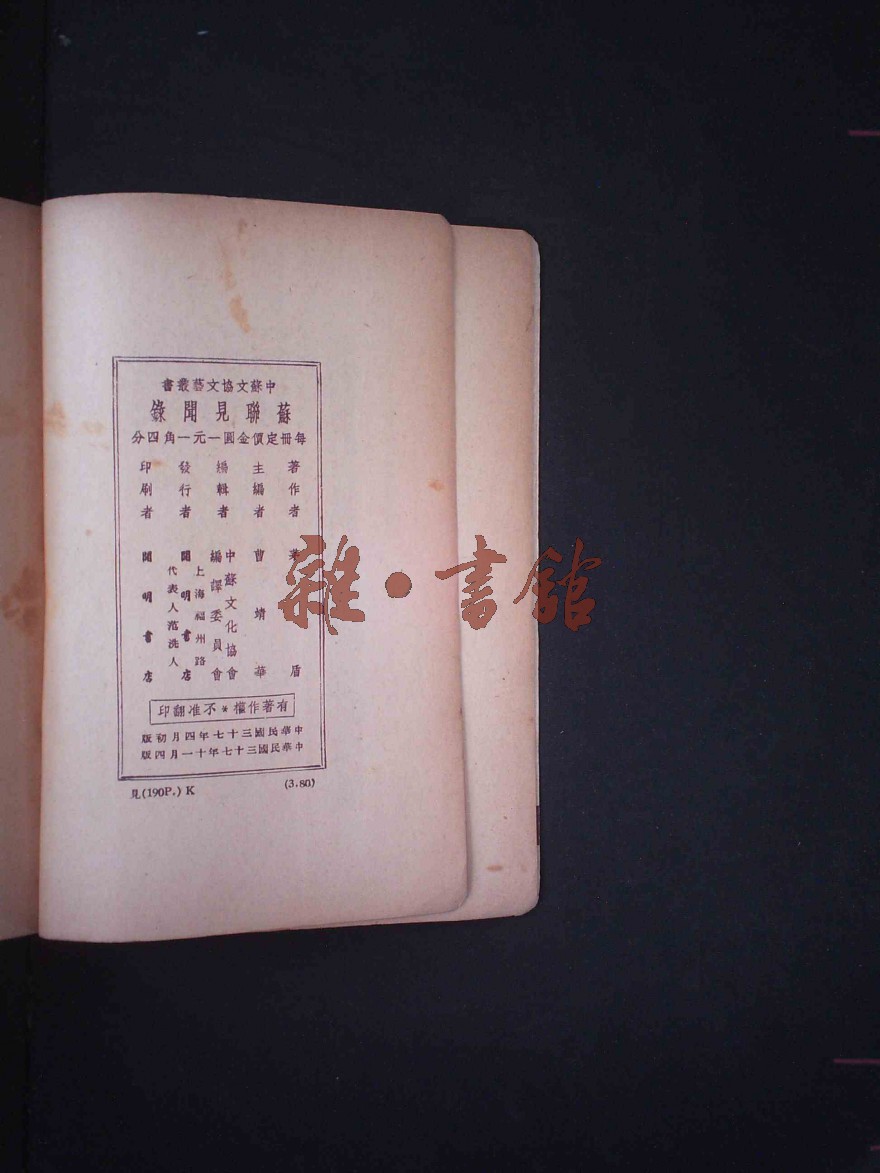 中蘇文協文藝叢書
蘇聯見聞錄
每冊定價金圓一元一角四分
著作者 茅盾
主編者 曹靖華
編輯者 中蘇文化協會
編譯委員會
發行者 上海福州路
開明書店
代表人范洗人
印刷者 開明書店
有著作權*不准翻印
中華民國三十七年四月初版
中華民國三十七年十一月四版
見(190P.) K (3.80)
雜·書館